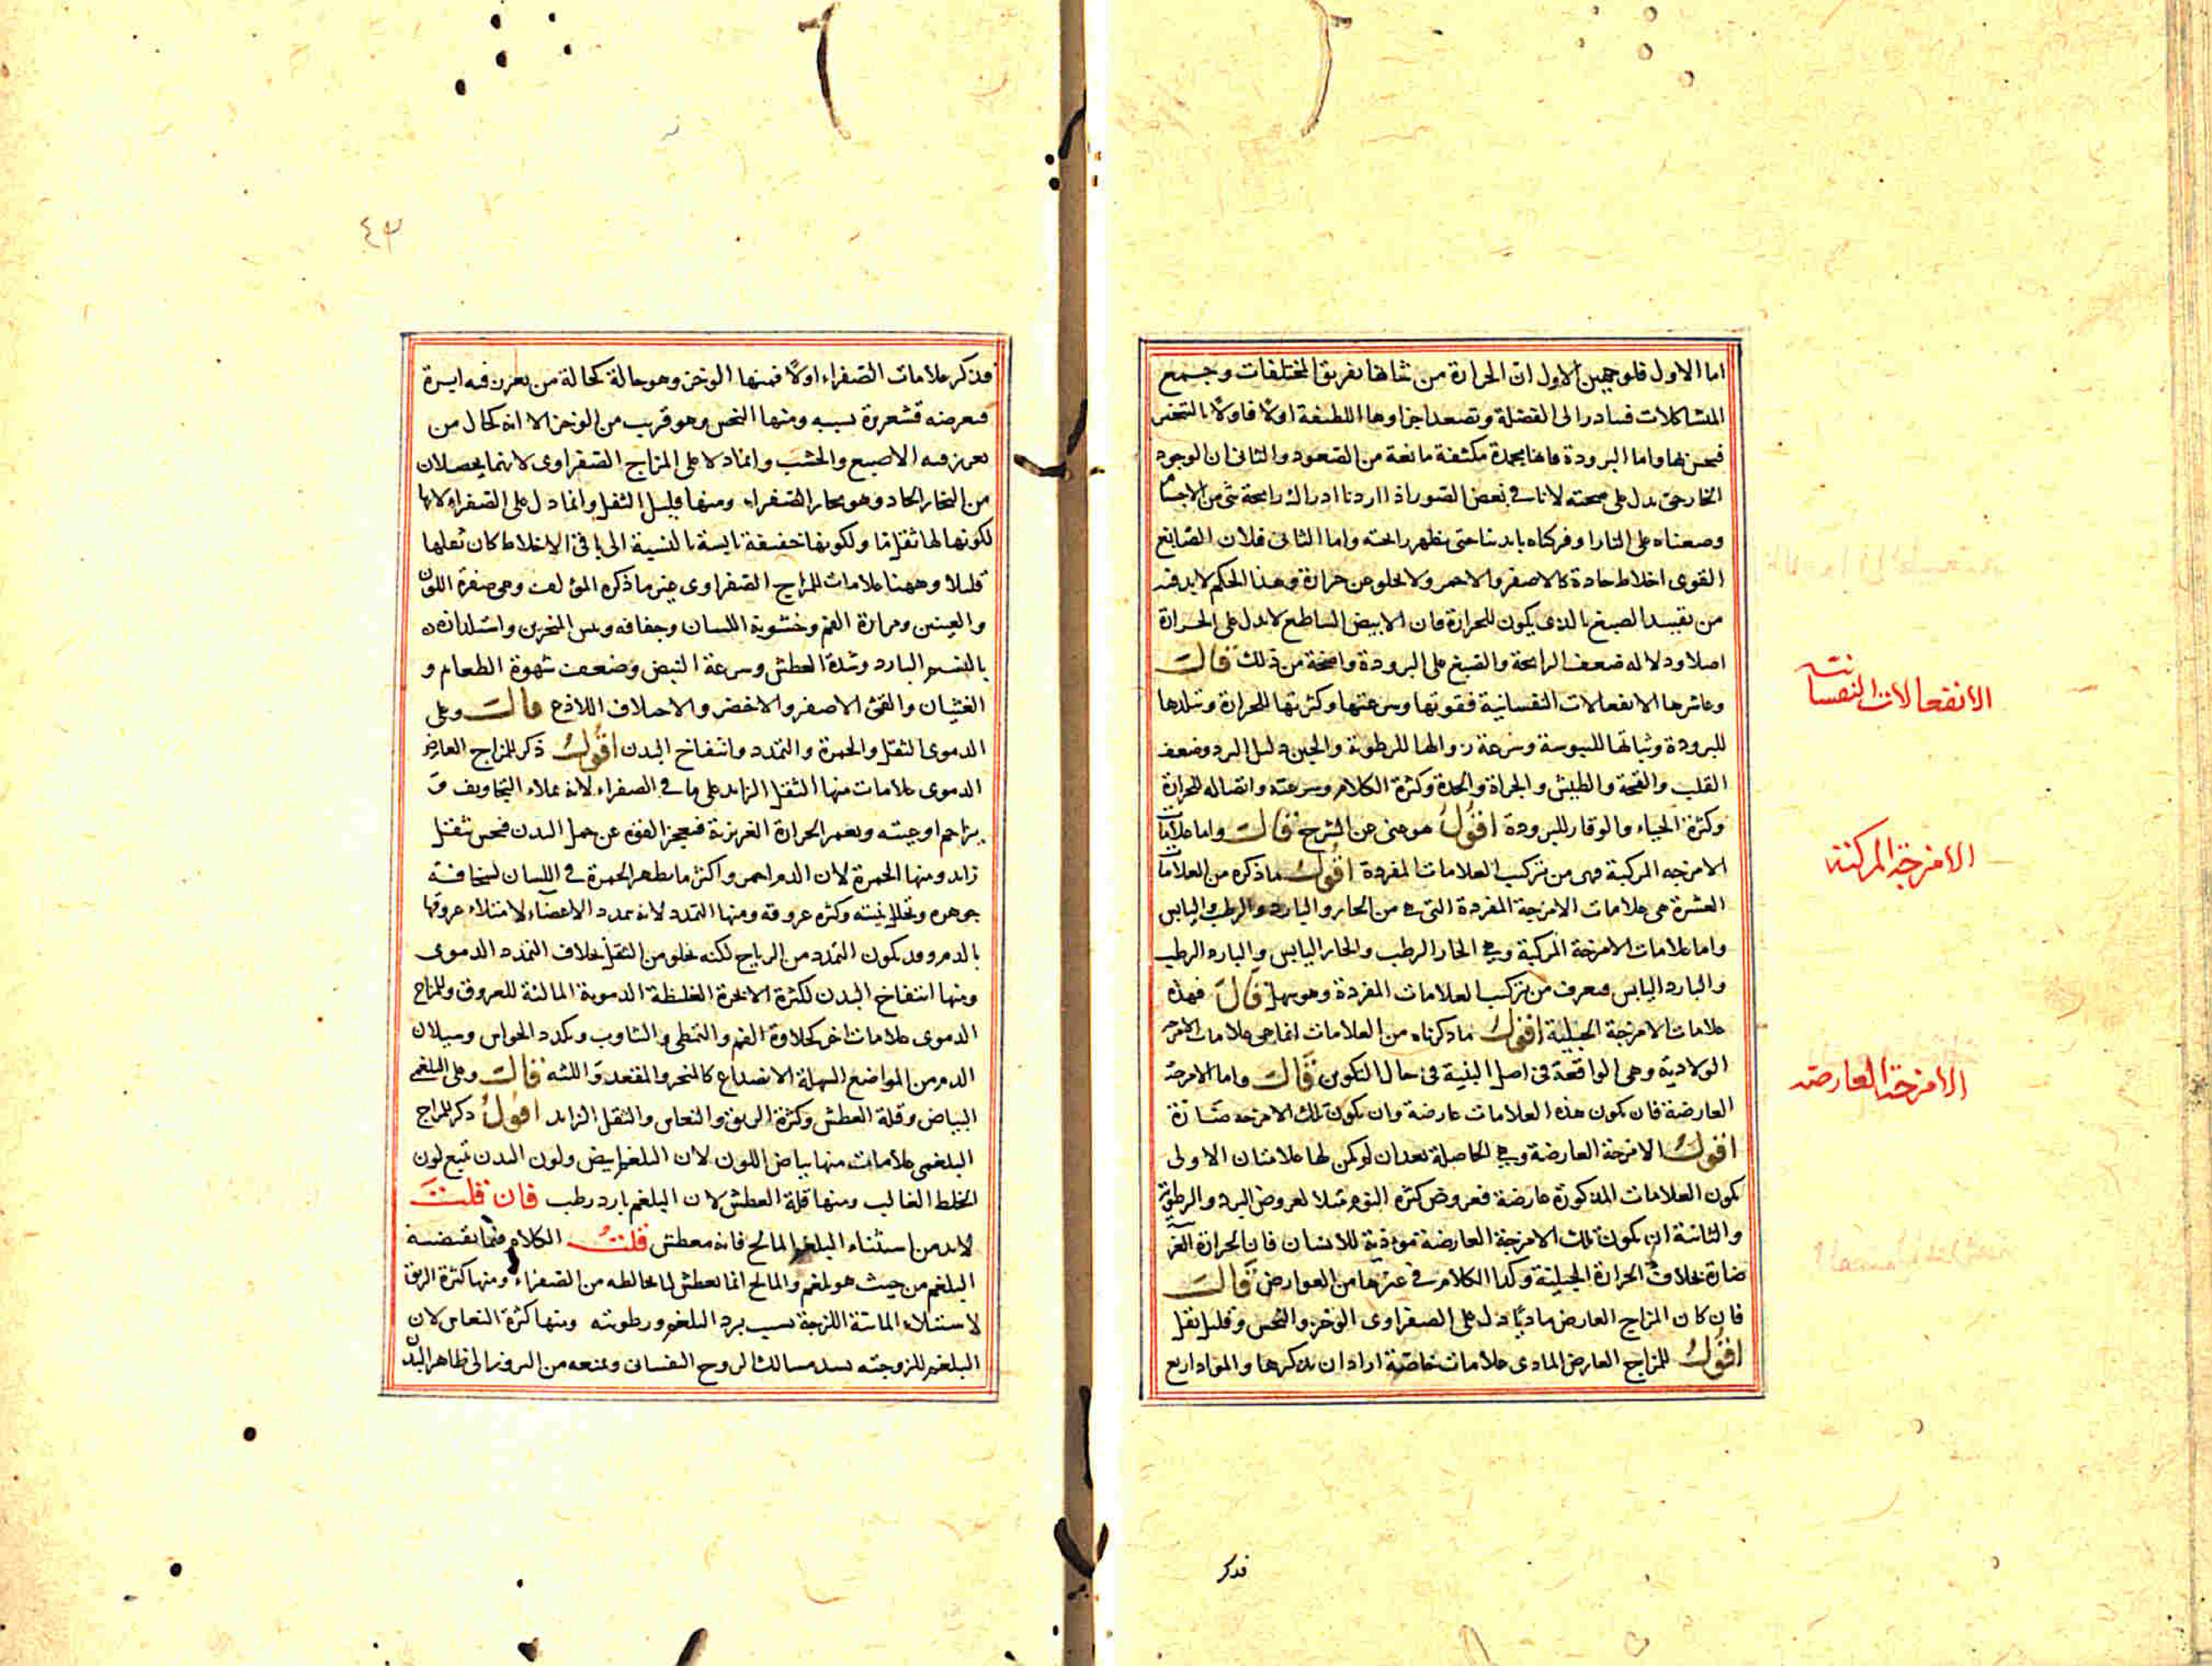 اما الاول فلوجهين الاول ان الحرارة من شانها تفريق المختلفات وجمع
المتشاكلات فتبادر الى الفضلة وتصعد اجزاوها اللطيفة اولا فاولا بالتبخير
فيحس بها واما البرودة فانها مجمدة مكثفة مانعة من الصعود والثانى ان الوجود
الخارجى يدل على صحته لانا فى بعض الصور اذا اردنا ادراك رايحة شى من الاجسام
وضعناه على النار او فركناه بايدينا حتى يظهر رايحته واما الثانى فلان الصابغ
القوى اخلاط حادة كالاصفر والاحمر ولا يخلو عن حرارة وهذا الحكم لابد فيه
من تقييد الصبغ بالذى يكون للحرارة فان الابيض الساطع لا يدل على الحرارة
اصلا ودلالة ضعف الرايحة والصبغ على البرودة واضحة من ذلك قال
وعاشرها الانفعالات النفسانية فقوتها وسرعتها وكثرتها للحرارة وتبلدها
للبرودة وثباتها لليبوسة وسرعة زوالها للرطوبة والجبن دليل البرد وضعف
القلب والقحة والطيش والجراة والحدة وكثرة الكلام وسرعته واتصاله للحرارة
وكثرة الحياء والوقار للبرودة اقول هو غنى عن الشرح قال واما علامات
الامزجه المركبة فهى من تركيب العلامات المفردة اقول ما ذكره من العلامات
العشرة هى علامات الامزجة المفردة التى هى من الحار والبارد والرطب واليابس
واما علامات الامزجة المركبة وهى الحار الرطب والحار اليابس والبارد الرطب
والبارد اليابس فيعرف من تركيب العلامات المفردة وهو سهل قال فهذه
علامات الامزجة الجبلية اقول ما ذكرناه من العلامات انما هى علامات الامزجة
الولادية وهى الواقعة فى اصل البنية فى حال التكوين قال واما الامزجة
العارضة فان يكون هذه العلامات عارضة وان يكون تلك الامزجه ضارة
اقول الامزجة العارضة وهى الحاصلة بعد ان لم يكن لها علامتان الاولى
يكون العلامات المذكورة عارضة فعروض كثرة النوم مثلا لعروض البرد والرطوبة
والثانية ان يكون تلك الامزجة العارضة موذية للانسان فان الحرارة الغر
ضارة بخلاف الحرارة الجبلية وكذا الكلام فى غيرها من العوارض قال
فان كان المزاج العارض ماديا دل على الصفراوى الوخز والنخس وقليل ثقل
اقول للمزاج العارض المادى علامات خاصة اراد ان يذكرها والمواد اربع
فذكر
الانفعالات النفسانية
الامزجة المركبة
الامزجة العارضه
٤٣
فذكر علامات الصفراء اولا فمنها الوخز وهو حالة كحالة من يغرز فيه ابرة
فيعرضه قشعريرة بسببه ومنها النخس وهو قريب من الوخز الا انه كحال من
يغرز فيه الاصبع والخشب وانما دلا على المزاج الصفراوى لانهما يحصلان
من البخار الحاد وهو بخار الصفراء ومنها قليل الثقل وانما دل على الصفراء لانها
لكونها لها ثقل ما ولكونها خفيفة يابسة بالنسبة الى باقى الاخلاط كان ثقلها
قليلا وههنا علامات للمزاج الصفراوى غير ما ذكره المؤلف وهى صفرة اللون
والعينين ومرارة الفم وخشونة اللسان وجفافه ويبس المنخرين واستلذاذه
بالنسيم البارد وشدة العطش وسرعة النبض وضعف شهوة الطعام و
الغثيان والقئ الاصفر والاخضر والاختلاف اللاذع قال وعلى
الدموى الثقل والحمرة والتمدد وانتفاخ البدن اقول ذكر للمزاج العارض
الدموى علامات منها الثقل الزايد على ما فى الصفراء لانه يملاء التجاويف و
يزاحم اوعيته ويغمر الحرارة الغريزية فيعجز القوة عن حمل البدن فيحس بثقل
زايد ومنها الحمرة لان الدم احمر واكثر ما يظهر الحمرة فى اللسان لسخافة
جوهره وتخلل بنيته وكثرة عروقه ومنها التمدد لانه يمدد الاعضاء لامتلاء عروقها
بالدم وقد يكون التمدد من الرياح لكنه يخلو من الثقل بخلاف التمدد الدموى
ومنها انتفاخ البدن لكثرة الابخرة الغليظة الدموية المالئة للعروق وللمزاج
الدموى علامات اخر كحلاوة الفم والتمطى والتثاوب وتكدد الحواس وسيلان
الدم من المواضع السهلة الانصداع كالمنخر والمقعدة واللثه قال وعلى البلغمى
البياض وقلة العطش وكثرة الريق والنعاس والثقل الزايد اقول ذكر للمزاج
البلغمى علامات منها بياض اللون لان البلغم ابيض ولون البدن تبع لون
الخلط الغالب ومنها قلة العطش لان البلغم بارد رطب فان قلت
لابد من استثناء البلغم المالح فانه معطش قلت الكلام فيما تقتضيه
البلغم من حيث هو بلغم والمالح انما يعطش لما يخالطه من الصفراء ومنها كثرة الريق
لاستيلاء المائية اللزجة بسبب برد البلغم ورطوبته ومنها كثرة النعاس لان
البلغم للزوجته يسد مسالك الروح النفسانى ويمنعه من البروز الى ظاهر البدن